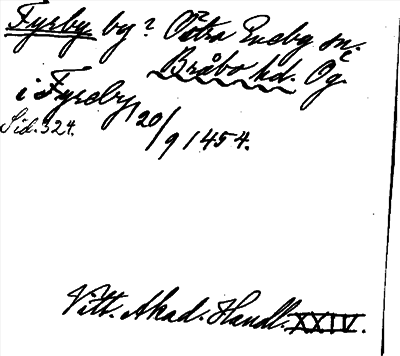 Fyrby by? Östra Eneby sn.
Bråbo hd. Ög.
i Fyreby 20/9 1454.
Sid. 324.
Vitt. Akad. Handl. XXIV.